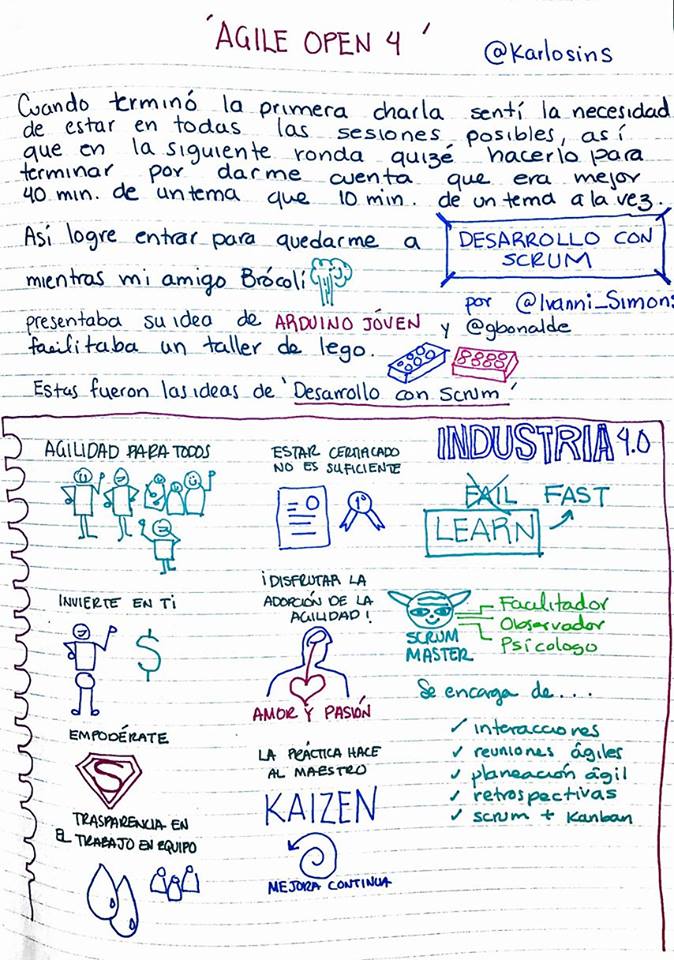 'AGILE OPEN 4'
@Karlosins
Cuando terminó la primera charla sentí la necesidad
de estar en todas las sesiones posibles, así
que en la siguiente ronda quizé hacerlo para
terminar por darme cuenta que era mejor
40 min. de un tema que 10 min. de un tema a la vez.
Así logre entrar para quedarme a
DESARROLLO CON
SCRUM
mientras mi amigo Brócoli
por @Ivanni_Simon
presentaba su idea de ARDUINO JÓVEN y @gbonalde
facilitaba un taller de lego.
Estas fueron las ideas de 'Desarrollo con Scrum'
AGILIDAD PARA TODOS
ESTAR CERTIFICADO
NO ES SUFICIENTE
1º
INDUSTRIA 4.0
FAIL FAST
LEARN
INVIERTE EN TI
$
¡DISFRUTAR LA
ADOPCIÓN DE LA
AGILIDAD!
AMOR Y PASIÓN
SCRUM
MASTER
Facilitador
Observador
Psicologo
Se encarga de....
✓ interacciones
✓ reuniones ágiles
✓ planeación ágil
✓ retrospectivas
✓ scrum + Kanban
EMPODÉRATE
S
LA PRÁCTICA HACE
AL MAESTRO
KAIZEN
MEJORA CONTINUA
TRASPARENCIA EN
EL TRABAJO EN EQUIPO